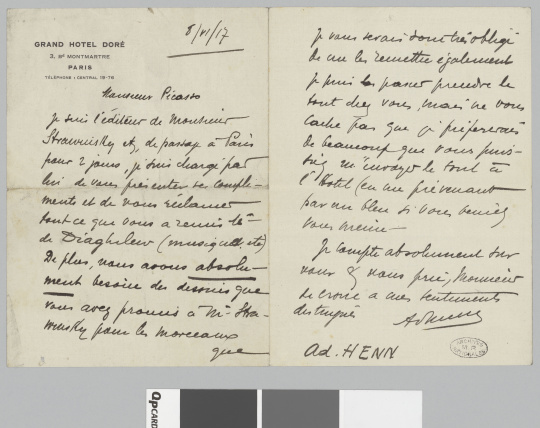 GRAND HOTEL DORÉ
3, Bd MONTMARTRE
PARIS
TÉLÉPHONE : CENTRAL 19-76
8/VI/17
Monsieur Picasso
Je suis l'éditeur de Monsieur
Strawinsky et, de passage à Paris
pour 2 jours, je suis chargé par
lui de vous présenter ses compli-
ments et de vous réclamer
tout ce que vous a remis Mr
de Diaghilew (musique, etc)
De plus, nous avons absolu-
ment besoin des dessins que
vous avez promis à Mr Stra-
winsky pour les morceaux
que
Je vous serais donc très obligé
de me les remettre également
je puis passer prendre le
tout chez vous, mais ne vous
cache pas que je préfèrerais
de beaucoup que vous puis-
siez m'envoyer le tout à
l'Hotel (en me prévenant
par un bleu si vous veniez
vous même -
Je compte absolument sur
vous & vous prie, Monsieur
de croire à mes sentiments
distingués
Ad. HENN